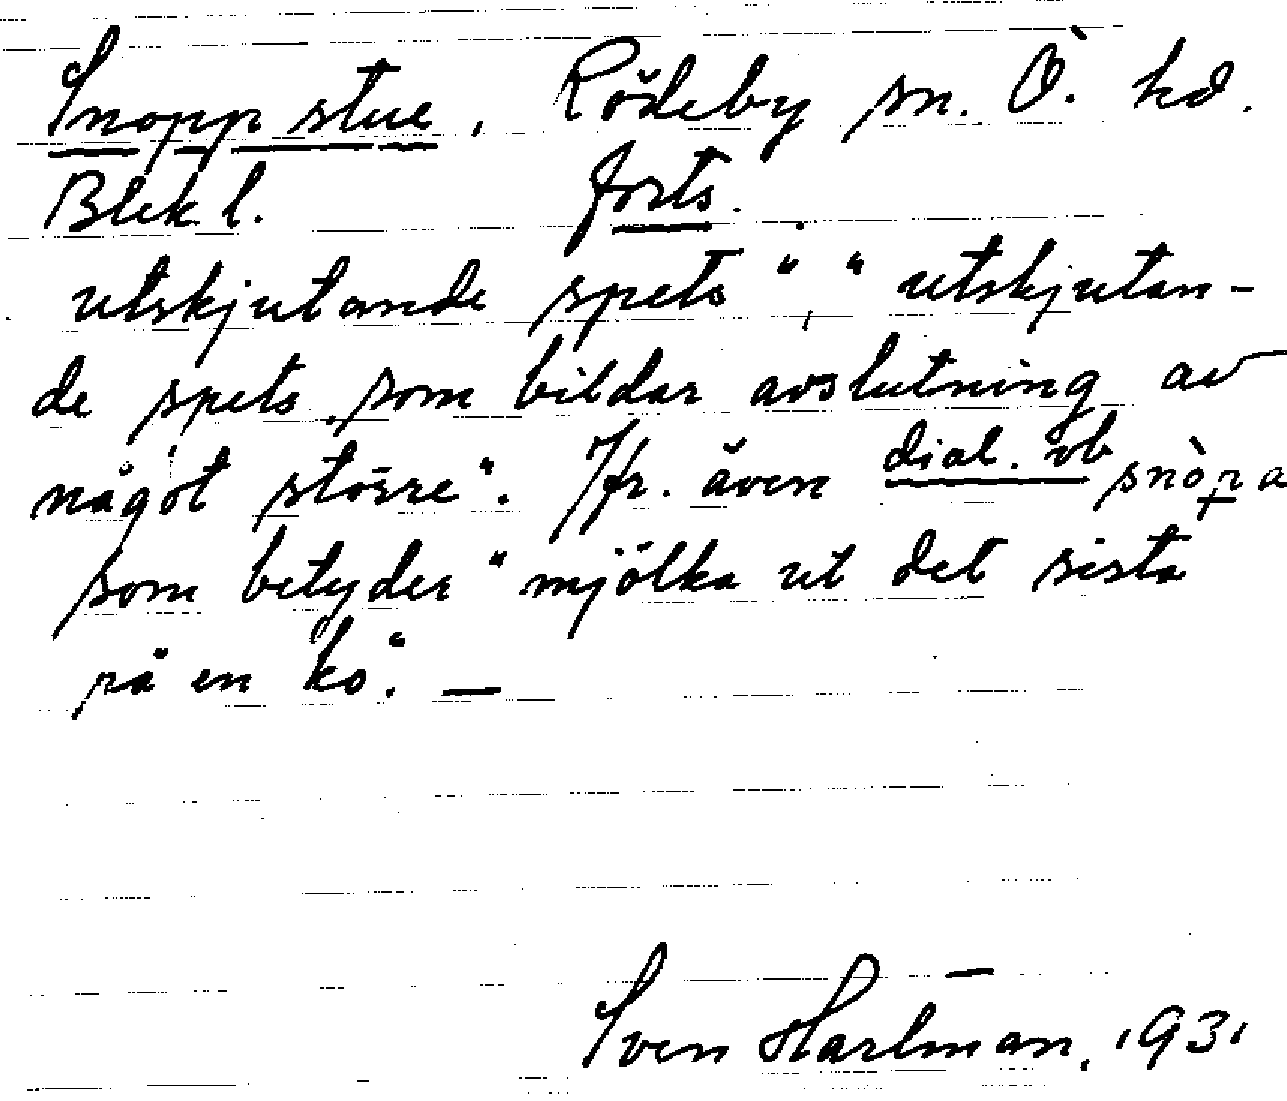 Snopp stue, Rödeby sn. Ö. hd.
Blek l. forts.
utskjutande spets", "utskjutan-
de spets som bildar avslutning av
något större". Jfr. även dial. vb snòpa
som betyder "mjölka ut det sista
på en ko". —
Sven Hartman, 1931